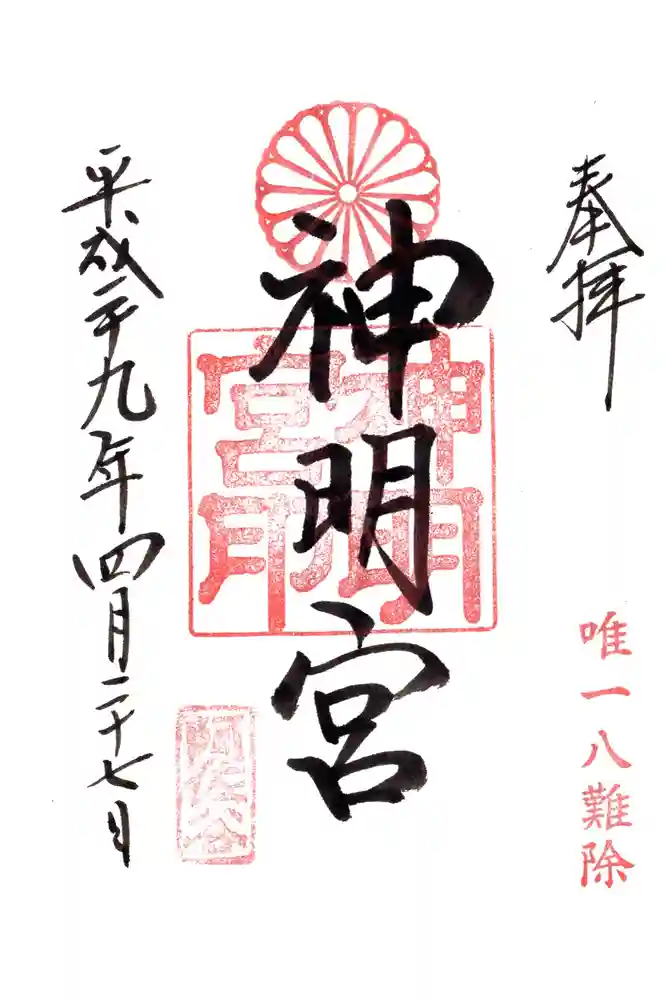 奉拝
唯一八難除
神明宮
神明
宮印
平成二十九年四月二十七日